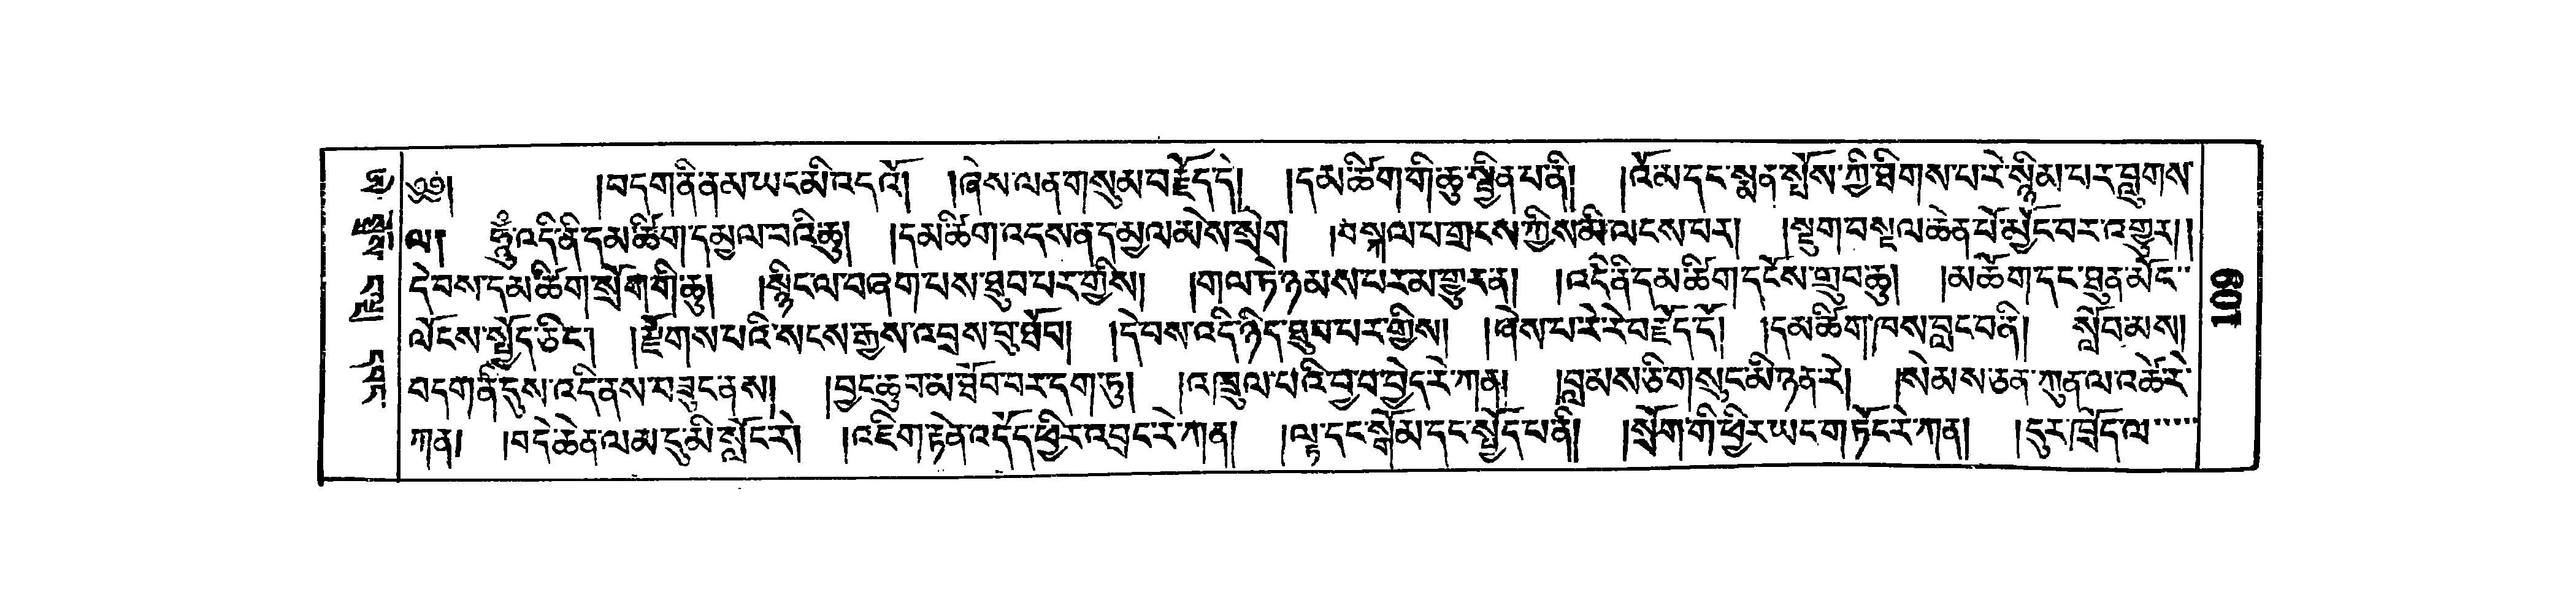 ༄༅། །བདག་ནི་ནམ་ཡང་མི་འདའོ། །ཞེས་ལན་གསུམ་བརྗོད་དེ། །དམ་ཚིག་གི་ཆུ་སྦྱིན་པ་ནི། །འོ་མ་དང་སྨན་སྤོས་ཀྱི་ཐིགས་པ་རེ་སྙིམ་པར་བླུགས་
ལ། ཧཱུྃ་འདི་ནི་དམ་ཚིག་དམྱལ་བའི་ཆུ། །དམ་ཚིག་འདས་ན་དམྱལ་མེས་སྲེག །བསྐལ་པ་གྲངས་ཀྱིས་མི་ལངས་པར། །སྡུག་བསྔལ་ཆེན་པོ་མྱོང་བར་འགྱུར། །
དེ་བས་དམ་ཚིག་སྲོག་གི་ཆུ། །སྙིང་ལ་བཞག་པས་ཐུབ་པར་གྱིས། །གལ་ཏེ་ཉམས་པར་མ་གྱུར་ན། །འདི་ནི་དམ་ཚིག་དངོས་གྲུབ་ཆུ། །མཆོག་དང་ཐུན་མོང་
ལོངས་སྤྱོད་ཅིང་། །རྫོགས་པའི་སངས་རྒྱས་འབྲས་བུ་ཐོབ། །དེ་བས་འདི་ཉིད་ཐུབ་པར་གྱིས། །ཞེས་པ་རེ་རེ་བརྗོད་དོ། །དམ་ཚིག་ཁས་བླང་བ་ནི། སློབ་མས།
བདག་ནི་དུས་འདི་ནས་བཟུང་ནས། །བྱང་ཆུབ་མ་ཐོབ་བར་དག་ཏུ། །འཁྲུལ་པའི་བྱ་བ་བྱེད་རེ་ཀན། །བླ་མས་ཅི་གསུང་མི་ཉན་རེ། །སེམས་ཅན་ཀུན་ལ་འཚེ་རེ་
ཀན། །བདེ་ཆེན་ལམ་དུ་མི་སློང་རེ། །འཇིག་རྟེན་འདོད་ཕྱིར་འབྲང་རེ་ཀན། །ལྟ་དང་སྒོམ་དང་སྤྱོད་པ་ནི། །སྲོག་གི་ཕྱིར་ཡང་གཏོང་རེ་ཀན། །དུར་ཁྲོད་ལ་
801